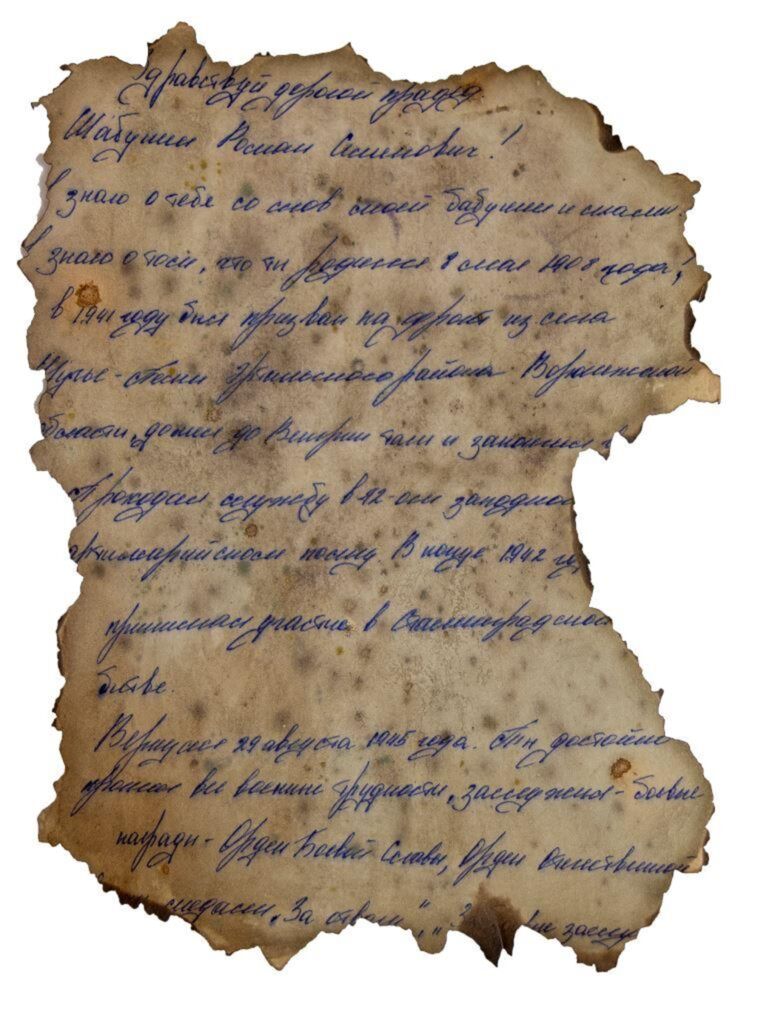 Здравствуй дорогой прадед
Шабунин Роман Семенович!
Я знаю о тебе со слов моей бабушки и мамы.
Я знаю о том, что ты родился 8 мая 1908 года,
в 1941 году был призван на фронт из села
района Воронежской
области, дошел до Венгрии там и закончил
Проходил службу в 92-ом западном
артиллерийском полку В конце 1942 го
принимал участие в Сталинградской
битве.
Вернулся 29 августа 1945 года. Ты достойно
прошел все военные трудности, заслужил - боевые
награды - Орден Боевой Славы, Орден Отечественной
медали „За отвагу", „З заслу